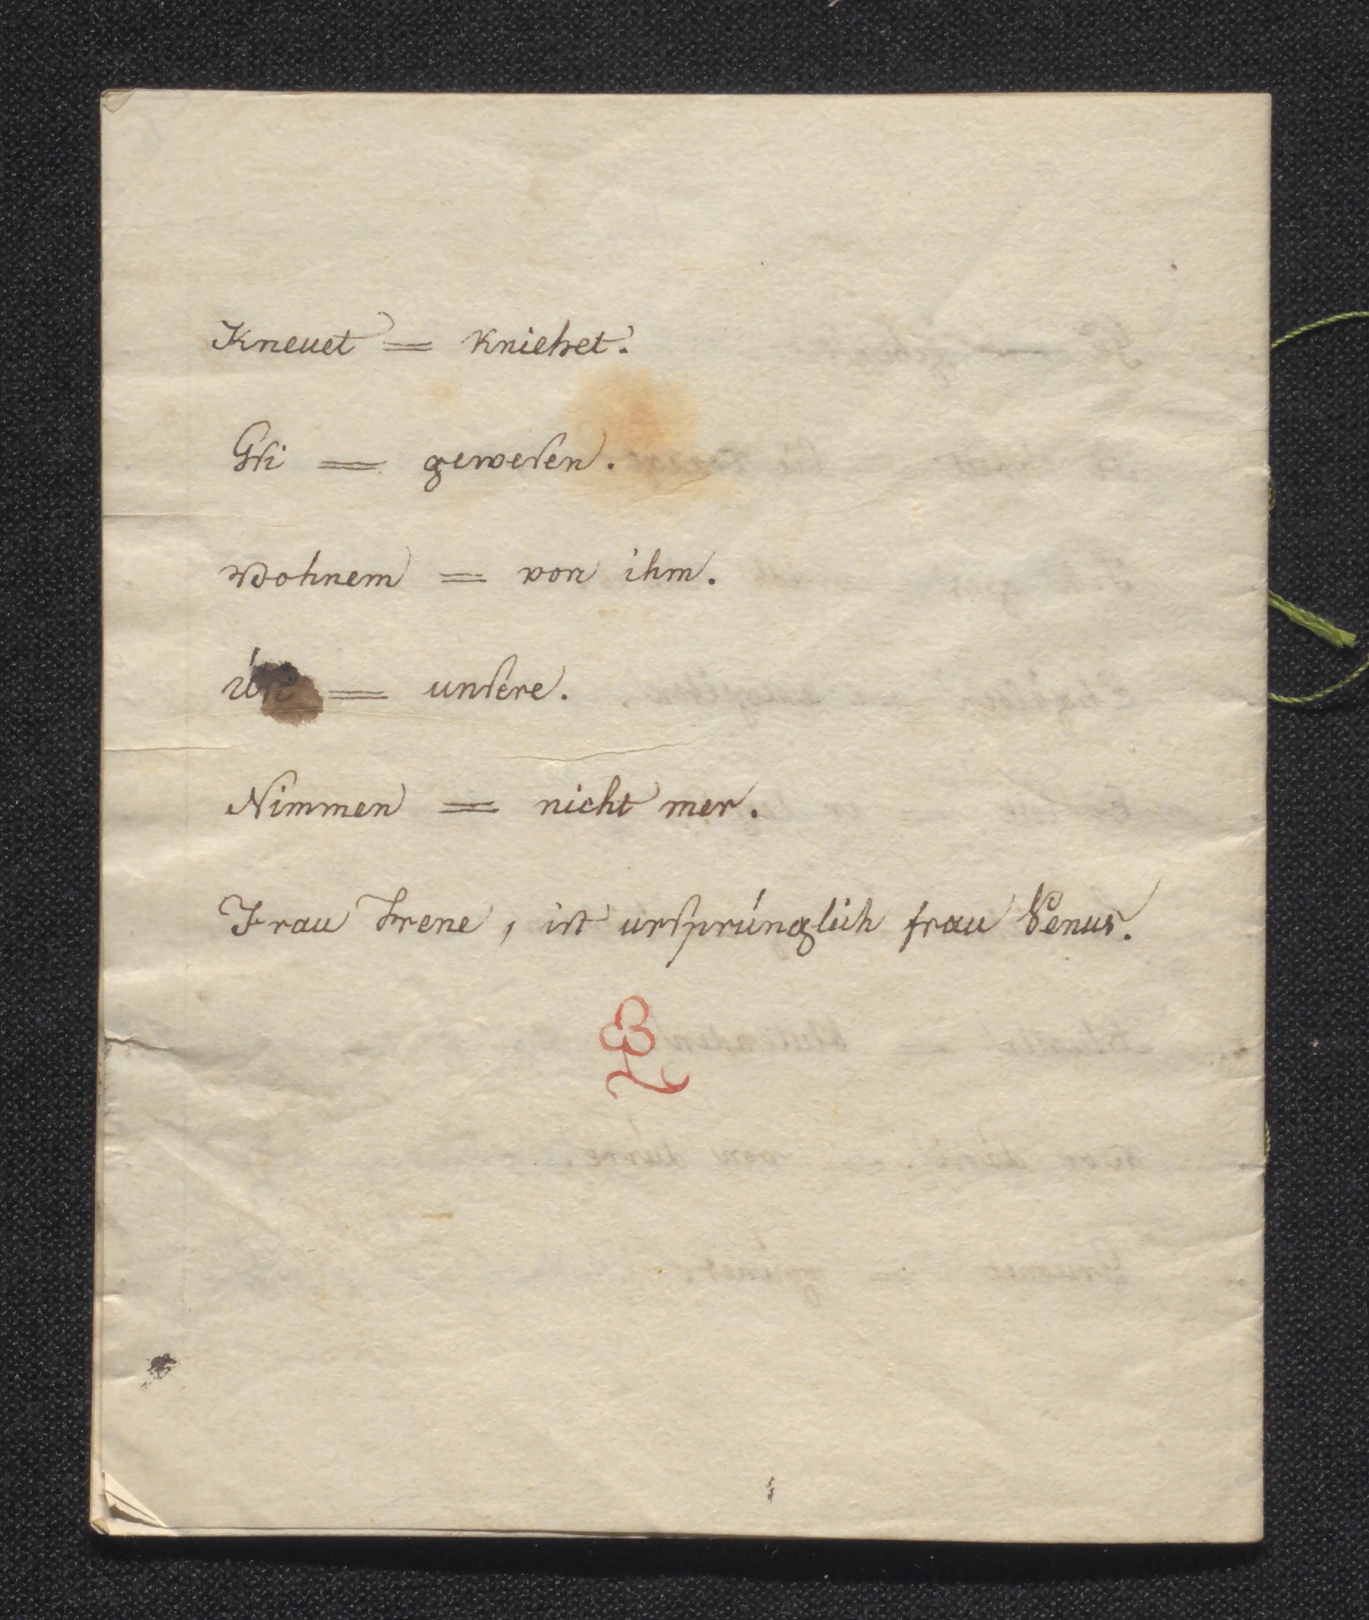 Kneuet = kniehet.
Gsi = gewesen.
Wohnem = von ihm.
= unsere.
Nimmen = nicht mer.
Frau Frene, ist ursprünglich frau Venus.